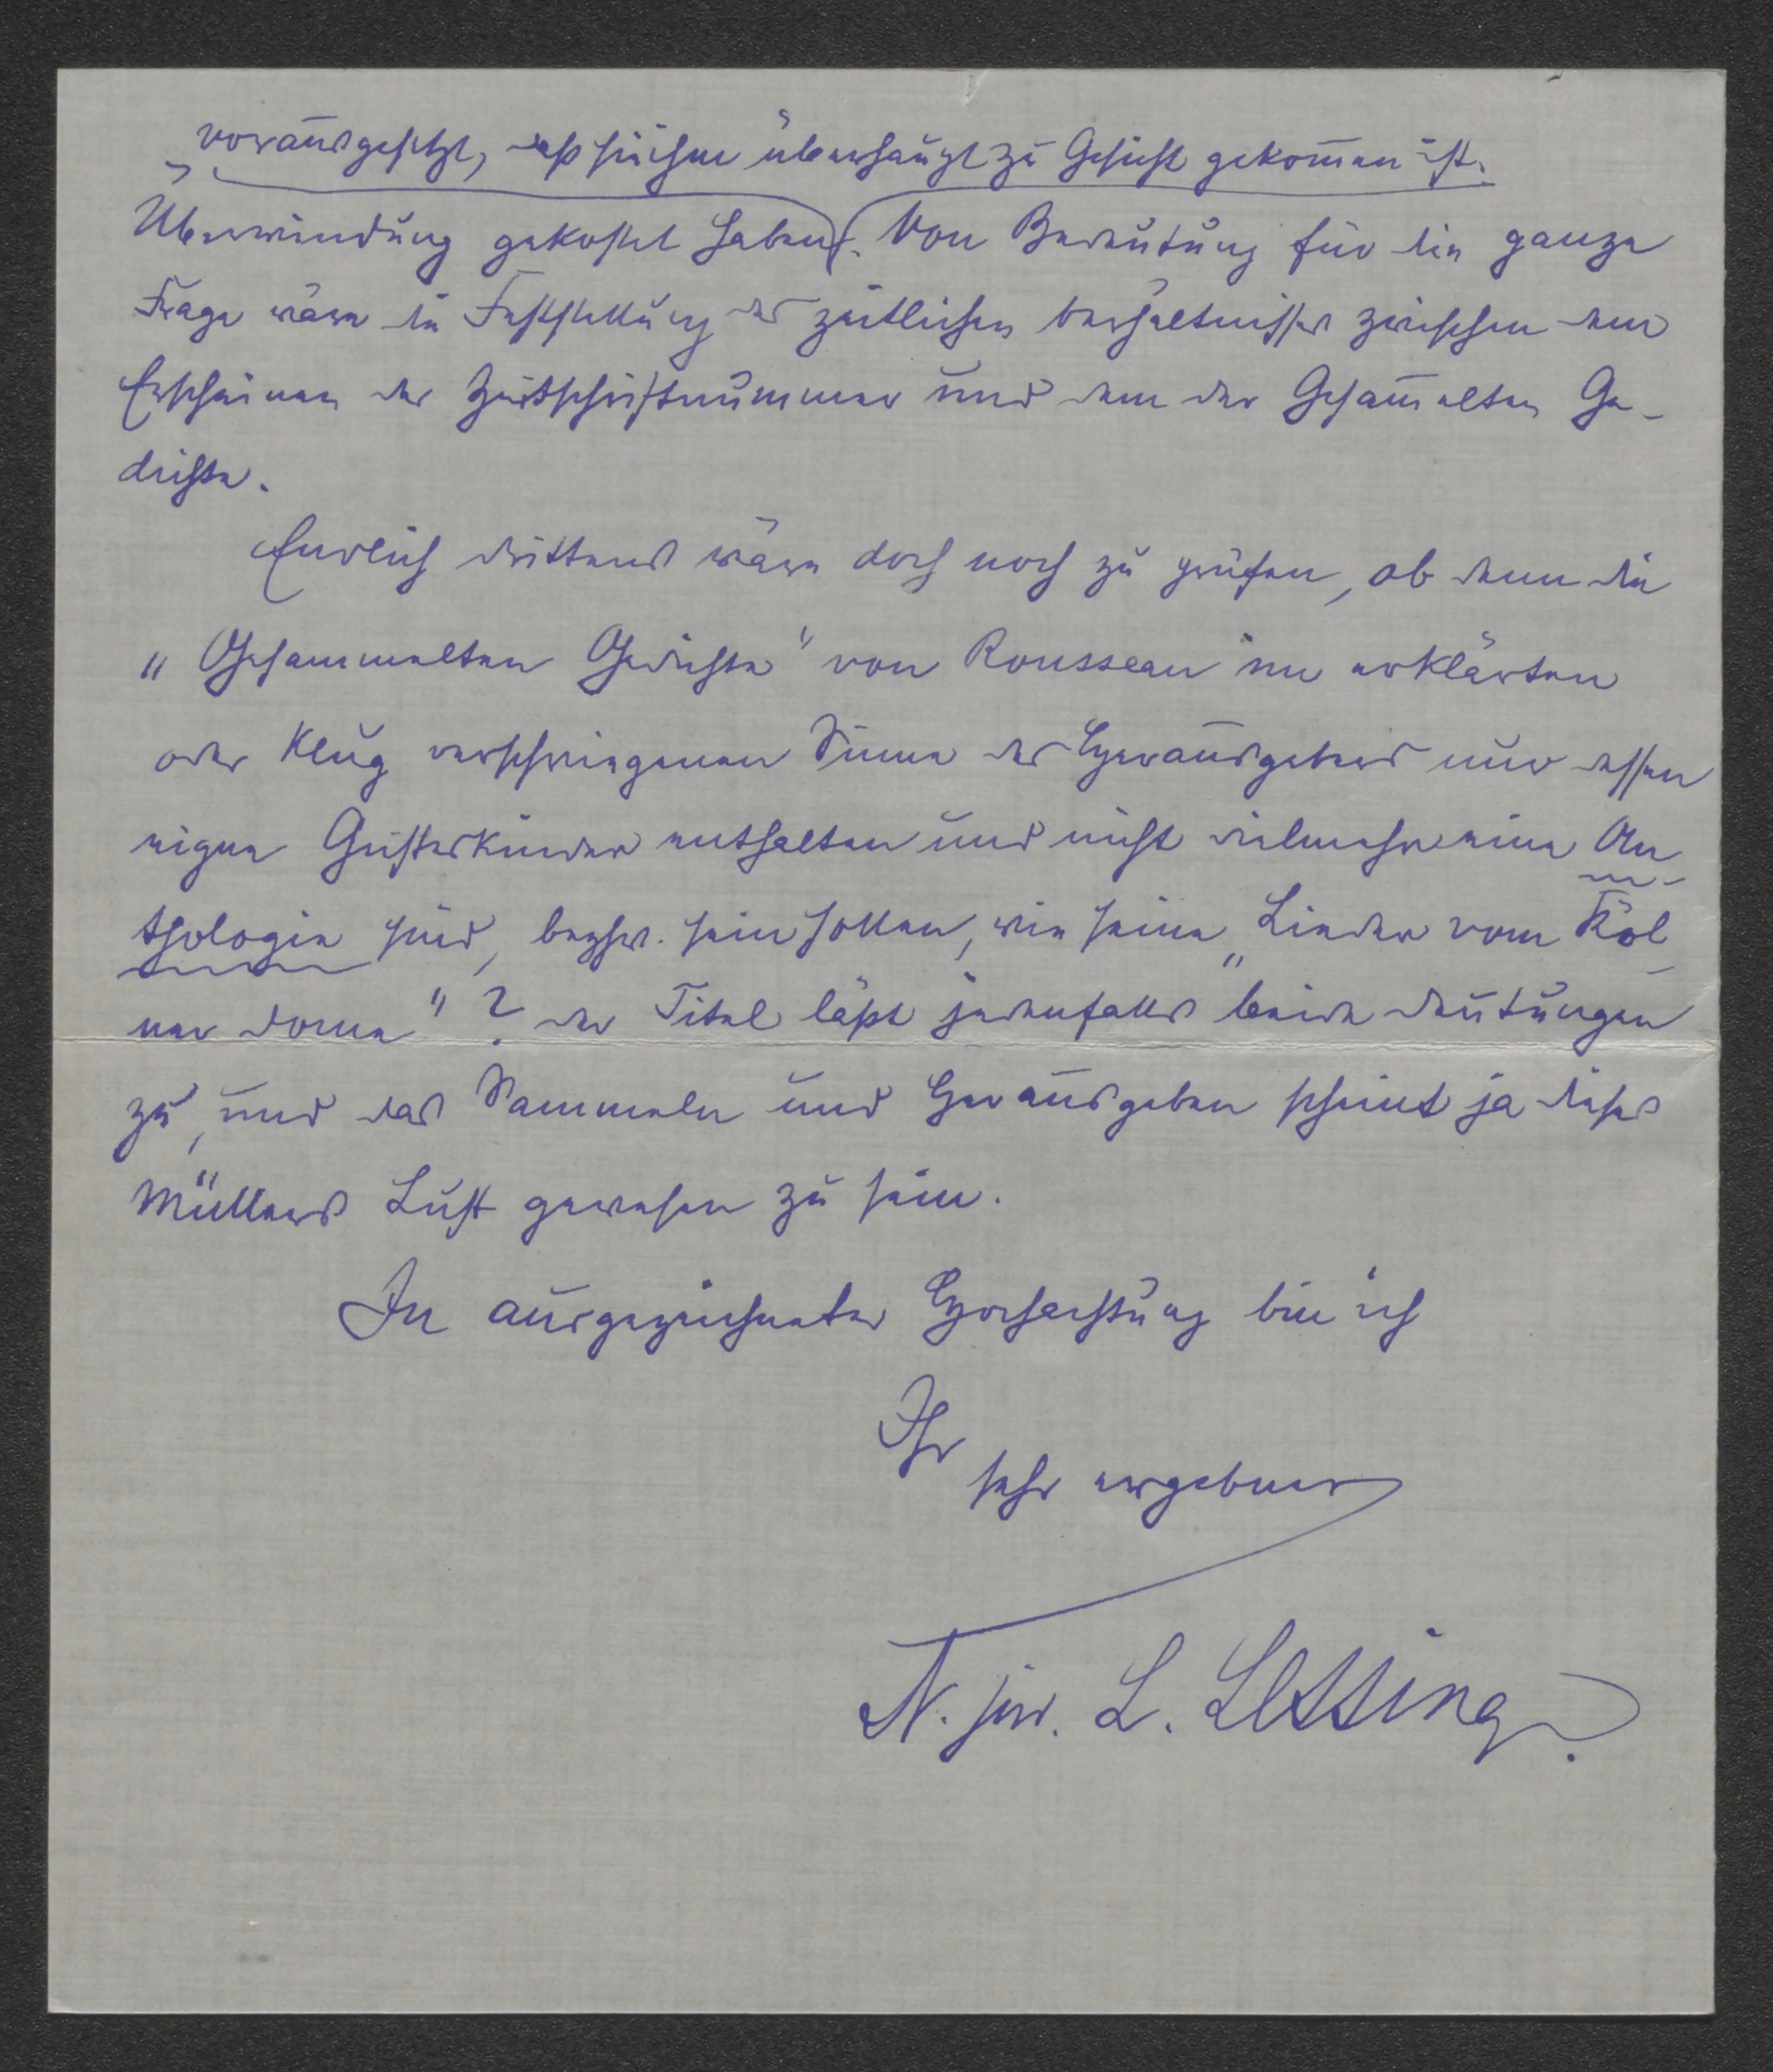 vorausgesetzt, daß sie ihm überhaupt zu Gesicht gekom̄en ist.
Überwindung gekostet haben. Von Bedeutung für die ganze
Frage wäre die Feststellung des zeitlichen Verhältnisses zwischen dem
Erscheinen der Zeitschriftnummer und dem der Gesam̄elten Ge-
dichte.
Endlich drittens wäre doch noch zu prüfen, ob denn die
„Gesammelten Gedichte" von Rousseau im erklärten
oder klug verschwiegenen Sinne des Herausgebers nur dessen
eigne Geisteskinder enthalten und nicht vielmehr eine An-
thologie sind, bezhw. sein sollen, wie seine „Lieder vom Köl-
ner Dome"? Der Titel läßt jedenfalls beide Deutungen
zu, und das Sammeln und Herausgeben scheint ja dieses
Müllers Lust gewesen zu sein.
In ausgezeichneter Hochachtung bin ich
Ihr
sehr ergebner
L. Lessing.